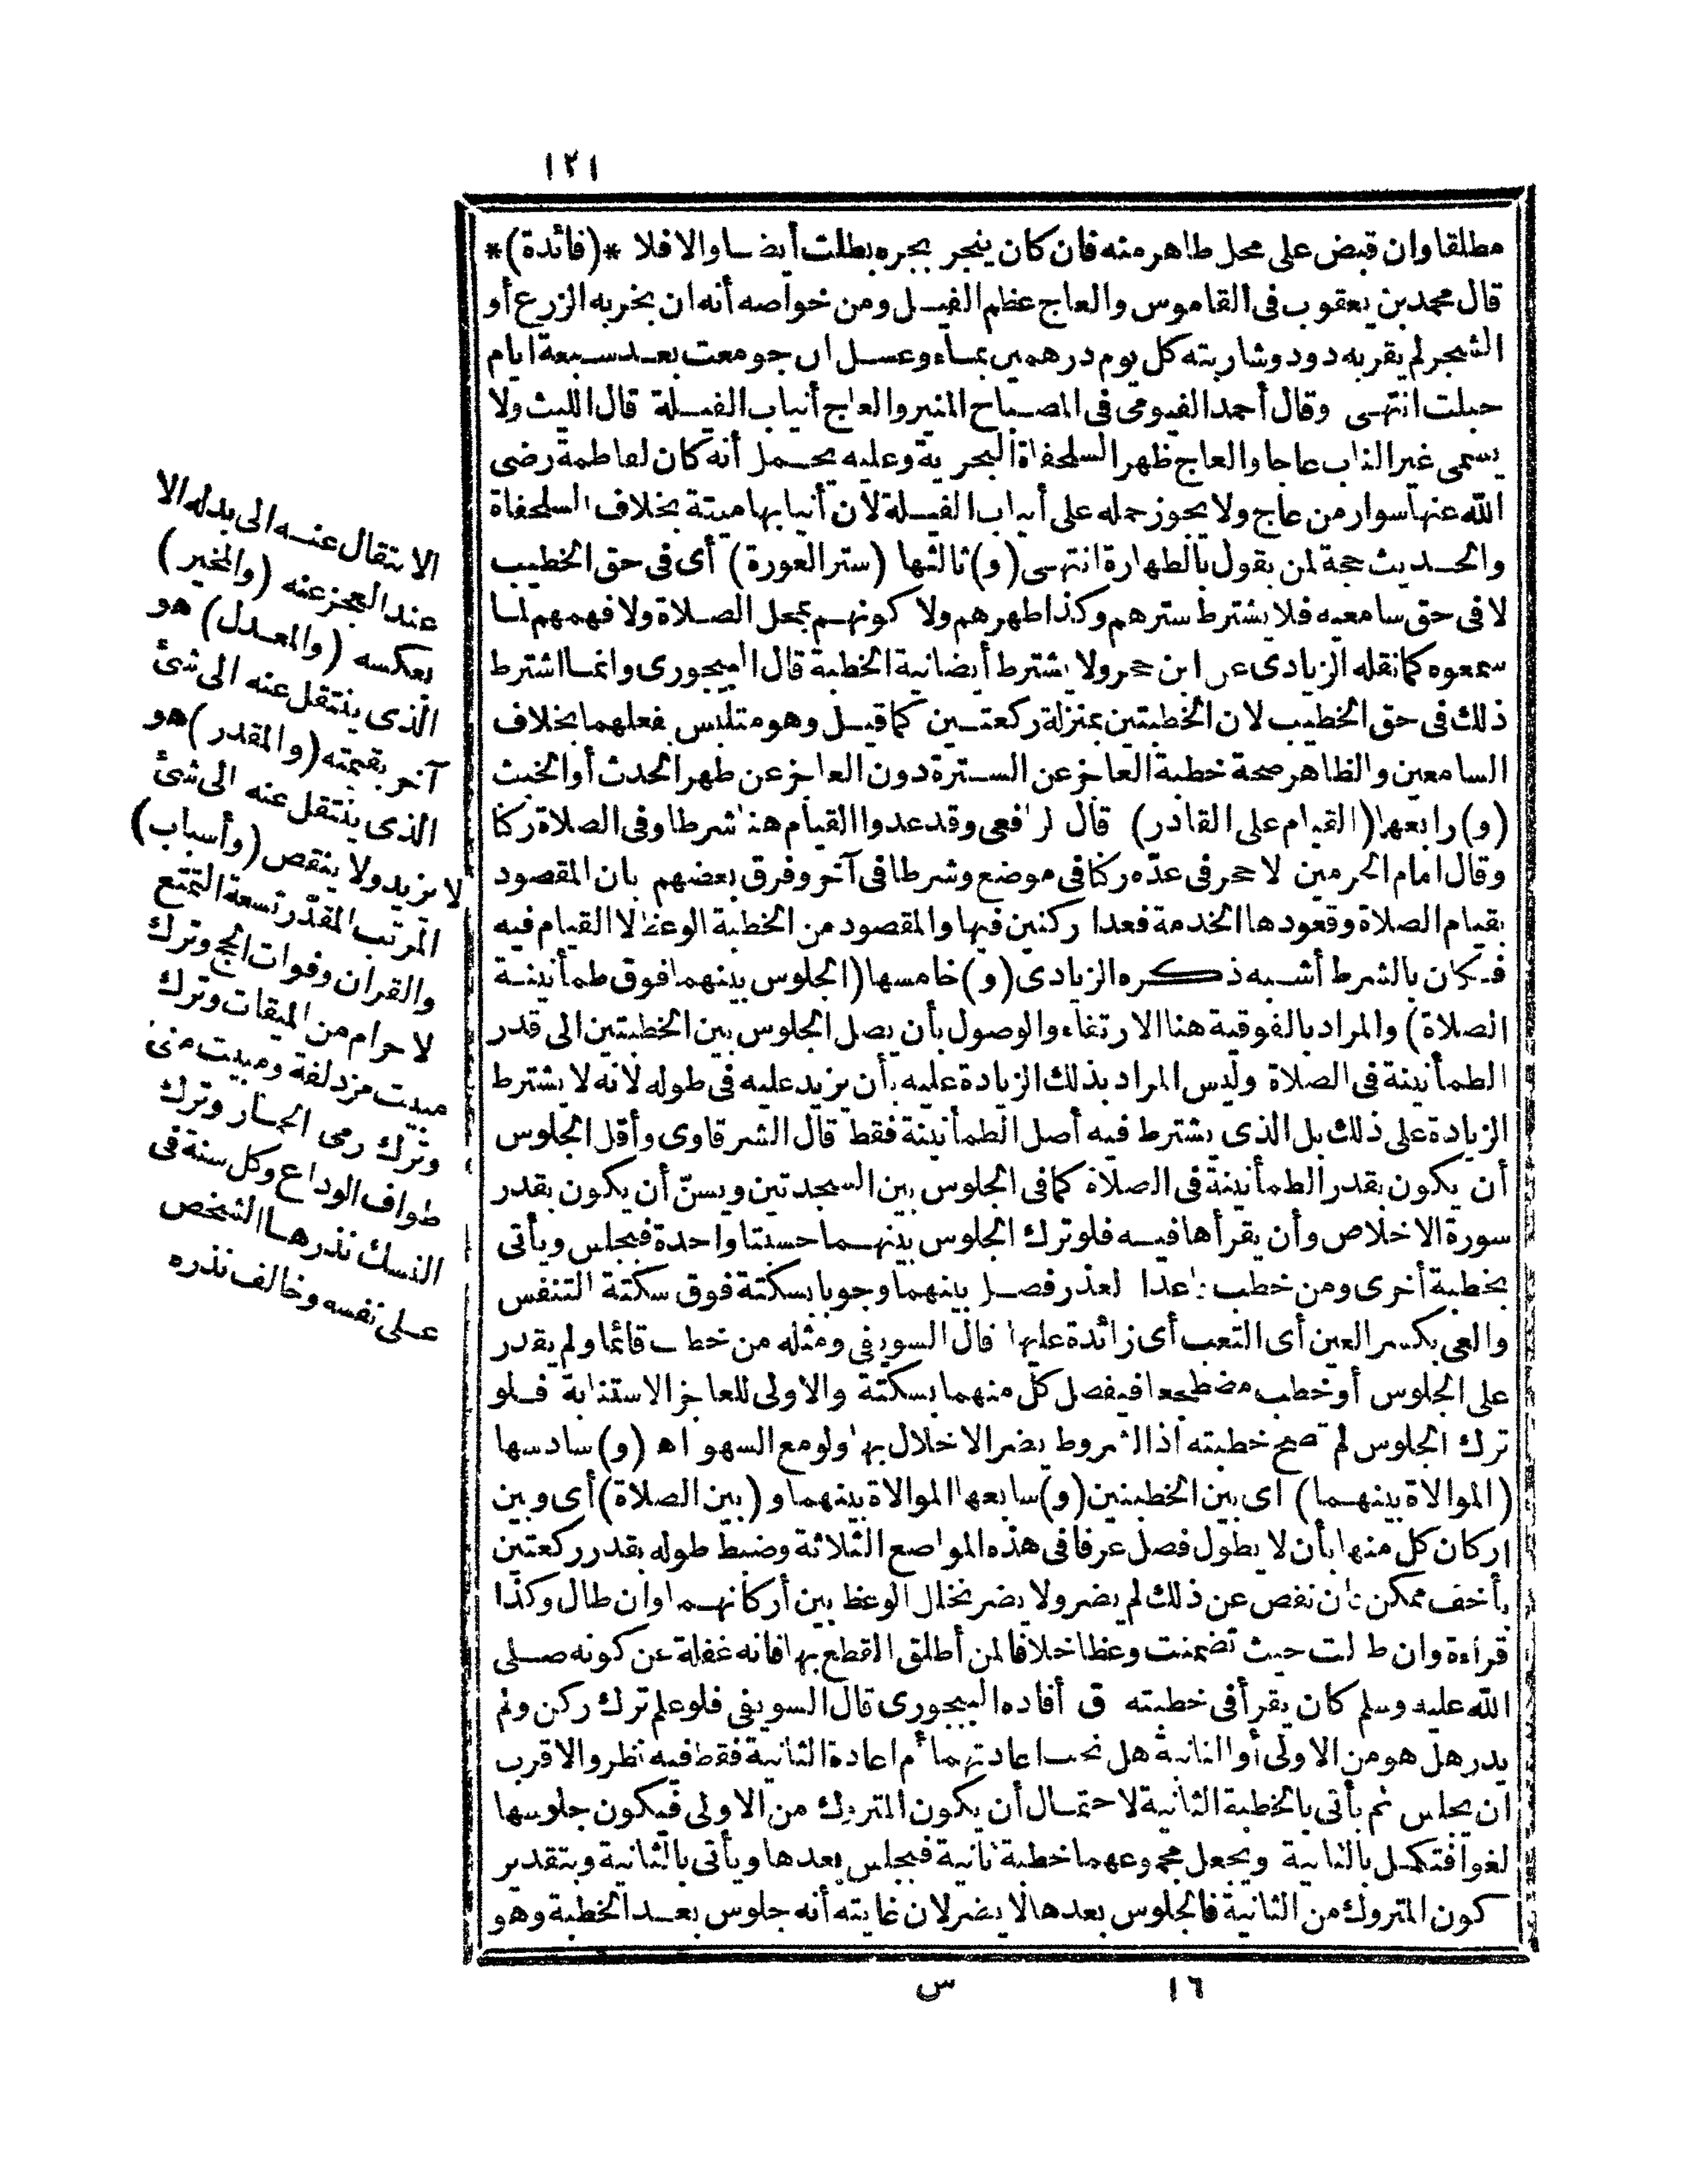 ١٢١
مطلقا وان قبض على محل طاهر منه فان كان ينجر بجره بطلت أيضا والا فلا *(فائدة)*
قال محمد بن يعقوب فى القاموس والعاج عظم الفيل ومن خواصه أنه ان بخر به الزرع أو
الشجر لم يقربه دود وشاربته كل يوم درهمين بماء وعسل ان جومعت بعد سبعة ايام
حبلت انتهى وقال أحمد الفيومى فى المصباح المنير والعاج أنياب الفيلة قال الليث ولا
يسمى غير الناب عاجا والعاج ظهر السلحفاة البحرية وعليه يحمل أنه كان لفاطمة رضى
الله عنها سوار من عاج ولا يجوز حمله على أنياب الفيلة لان أنيابها ميتة بخلاف السلحفاة
والحديث حجة لمن يقول بالطهارة انتهى (و) ثالثها (ستر العورة) أى فى حق الخطيب
لا فى حق سامعيه فلا يشترط سترهم وكذا طهرهم ولا كونهم بمحل الصلاة ولا فهمهم لما
سمعوه كما نقله الزيادى عن ابن حجر ولا يشترط أيضا نية الخطبة قال البيجورى وانما اشترط
ذلك فى حق الخطيب لان الخطبتين بمنزلة ركعتين كما قيل وهو متلبس بفعلهما بخلاف
السامعين والظاهر صحة خطبة العاجز عن السترة دون العاجز عن طهر الحدث أو الخبث
(و) رابعها (القيام على القادر) قال الرافعى وقد عدوا القيام هنا شرطا وفى الصلاة ركنا
وقال امام الحرمين لا حجر فى عدّه ركنا فى موضع وشرطا فى آخر وفرق بعضهم بان المقصود
بقيام الصلاة وقعودها الخدمة فعدا ركنين فيها والمقصود من الخطبة الوعظ لا القيام فيه
فكان بالشرط أشبه ذكره الزيادى (و) خامسها (الجلوس بينهما فوق طمأنينة
الصلاة) والمراد بالفوقية هنا الارتقاء والوصول بأن يصل الجلوس بين الخطبتين الى قدر
الطمأنينة فى الصلاة وليس المراد بذلك الزيادة عليه بأن يزيد عليه فى طوله لانه لا يشترط
الزيادة على ذلك بل الذى يشترط فيه أصل الطمأنينة فقط قال الشرقاوى وأقل الجلوس
أن يكون بقدر الطمأنينة فى الصلاة كما فى الجلوس بين السجدتين ويسنّ أن يكون بقدر
سورة الاخلاص وأن يقرأها فيه فلو ترك الجلوس بينهما حسبتا واحدة فيجلس ويأتى
بخطبة أخرى ومن خطب قاعدا لعذر فصل بينهما وجوبا بسكتة فوق سكتة التنفس
والعى بكسر العين أى التعب أى زائدة عليها قال السويفى ومثله من خطب قائما ولم يقدر
على الجلوس أو خطب مضطجعا فيفصل كل منهما بسكتة والاولى للعاجز الاستنابة فلو
ترك الجلوس لم تصح خطبته اذ الشروط يضر الاخلال بها ولو مع السهو اه (و) سادسها
(الموالاة بينهما) اى بين الخطبتين (و) سابعها الموالاة بينهما و (بين الصلاة) أى وبين
اركان كل منها بأن لا يطول فصل عرفا فى هذه المواضع الثلاثة وضبط طوله بقدر ركعتين
بأخف ممكن فان نقص عن ذلك لم يضر ولا يضر تخلل الوعظ بين أركانهما وان طال وكذا
قراءة وان طالت حيث تضمنت وعظا خلافا لمن أطلق القطع بها فانه غفلة عن كونه صلى
الله عليه وسلم كان يقرأ فى خطبته ق أفاده البيجورى قال السويفى فلو علم ترك ركن ولم
يدر هل هو من الاولى أو الثانية هل تجب اعادتهما أم اعادة الثانية فقط فيه نظر والاقرب
ان يجلس ثم يأتى بالخطبة الثانية لاحتمال أن يكون المتروك من الاولى فيكون جلوسها
لغوا فتكمل بالثانية ويجعل مجموعهما خطبة ثانية فيجلس بعدها ويأتى بالثانية وبتقدير
كون المتروك من الثانية فالجلوس بعدها لا يضر لان غايته أنه جلوس بعد الخطبة وهو
الانتقال عنه الى بدله الا
عند العجز عنه (والمخير)
بعكسه (والمعدل) هو
الذى ينتقل عنه الى شئ
آخر بقيمته (والمقدر) هو
الذى ينتقل عنه الى شئ
لا يزيد ولا ينقص (وأسباب)
المرتب المقدّر تسعة التمتع
والقران وفوات الحج وترك
لاحرام من الميقات وترك
مبيت مزدلفة ومبيت منى
وترك رمى الجمار وترك
طواف الوداع وكل سنة فى
النسك نذرها الشخص
على نفسه وخالف نذره
١٦ س